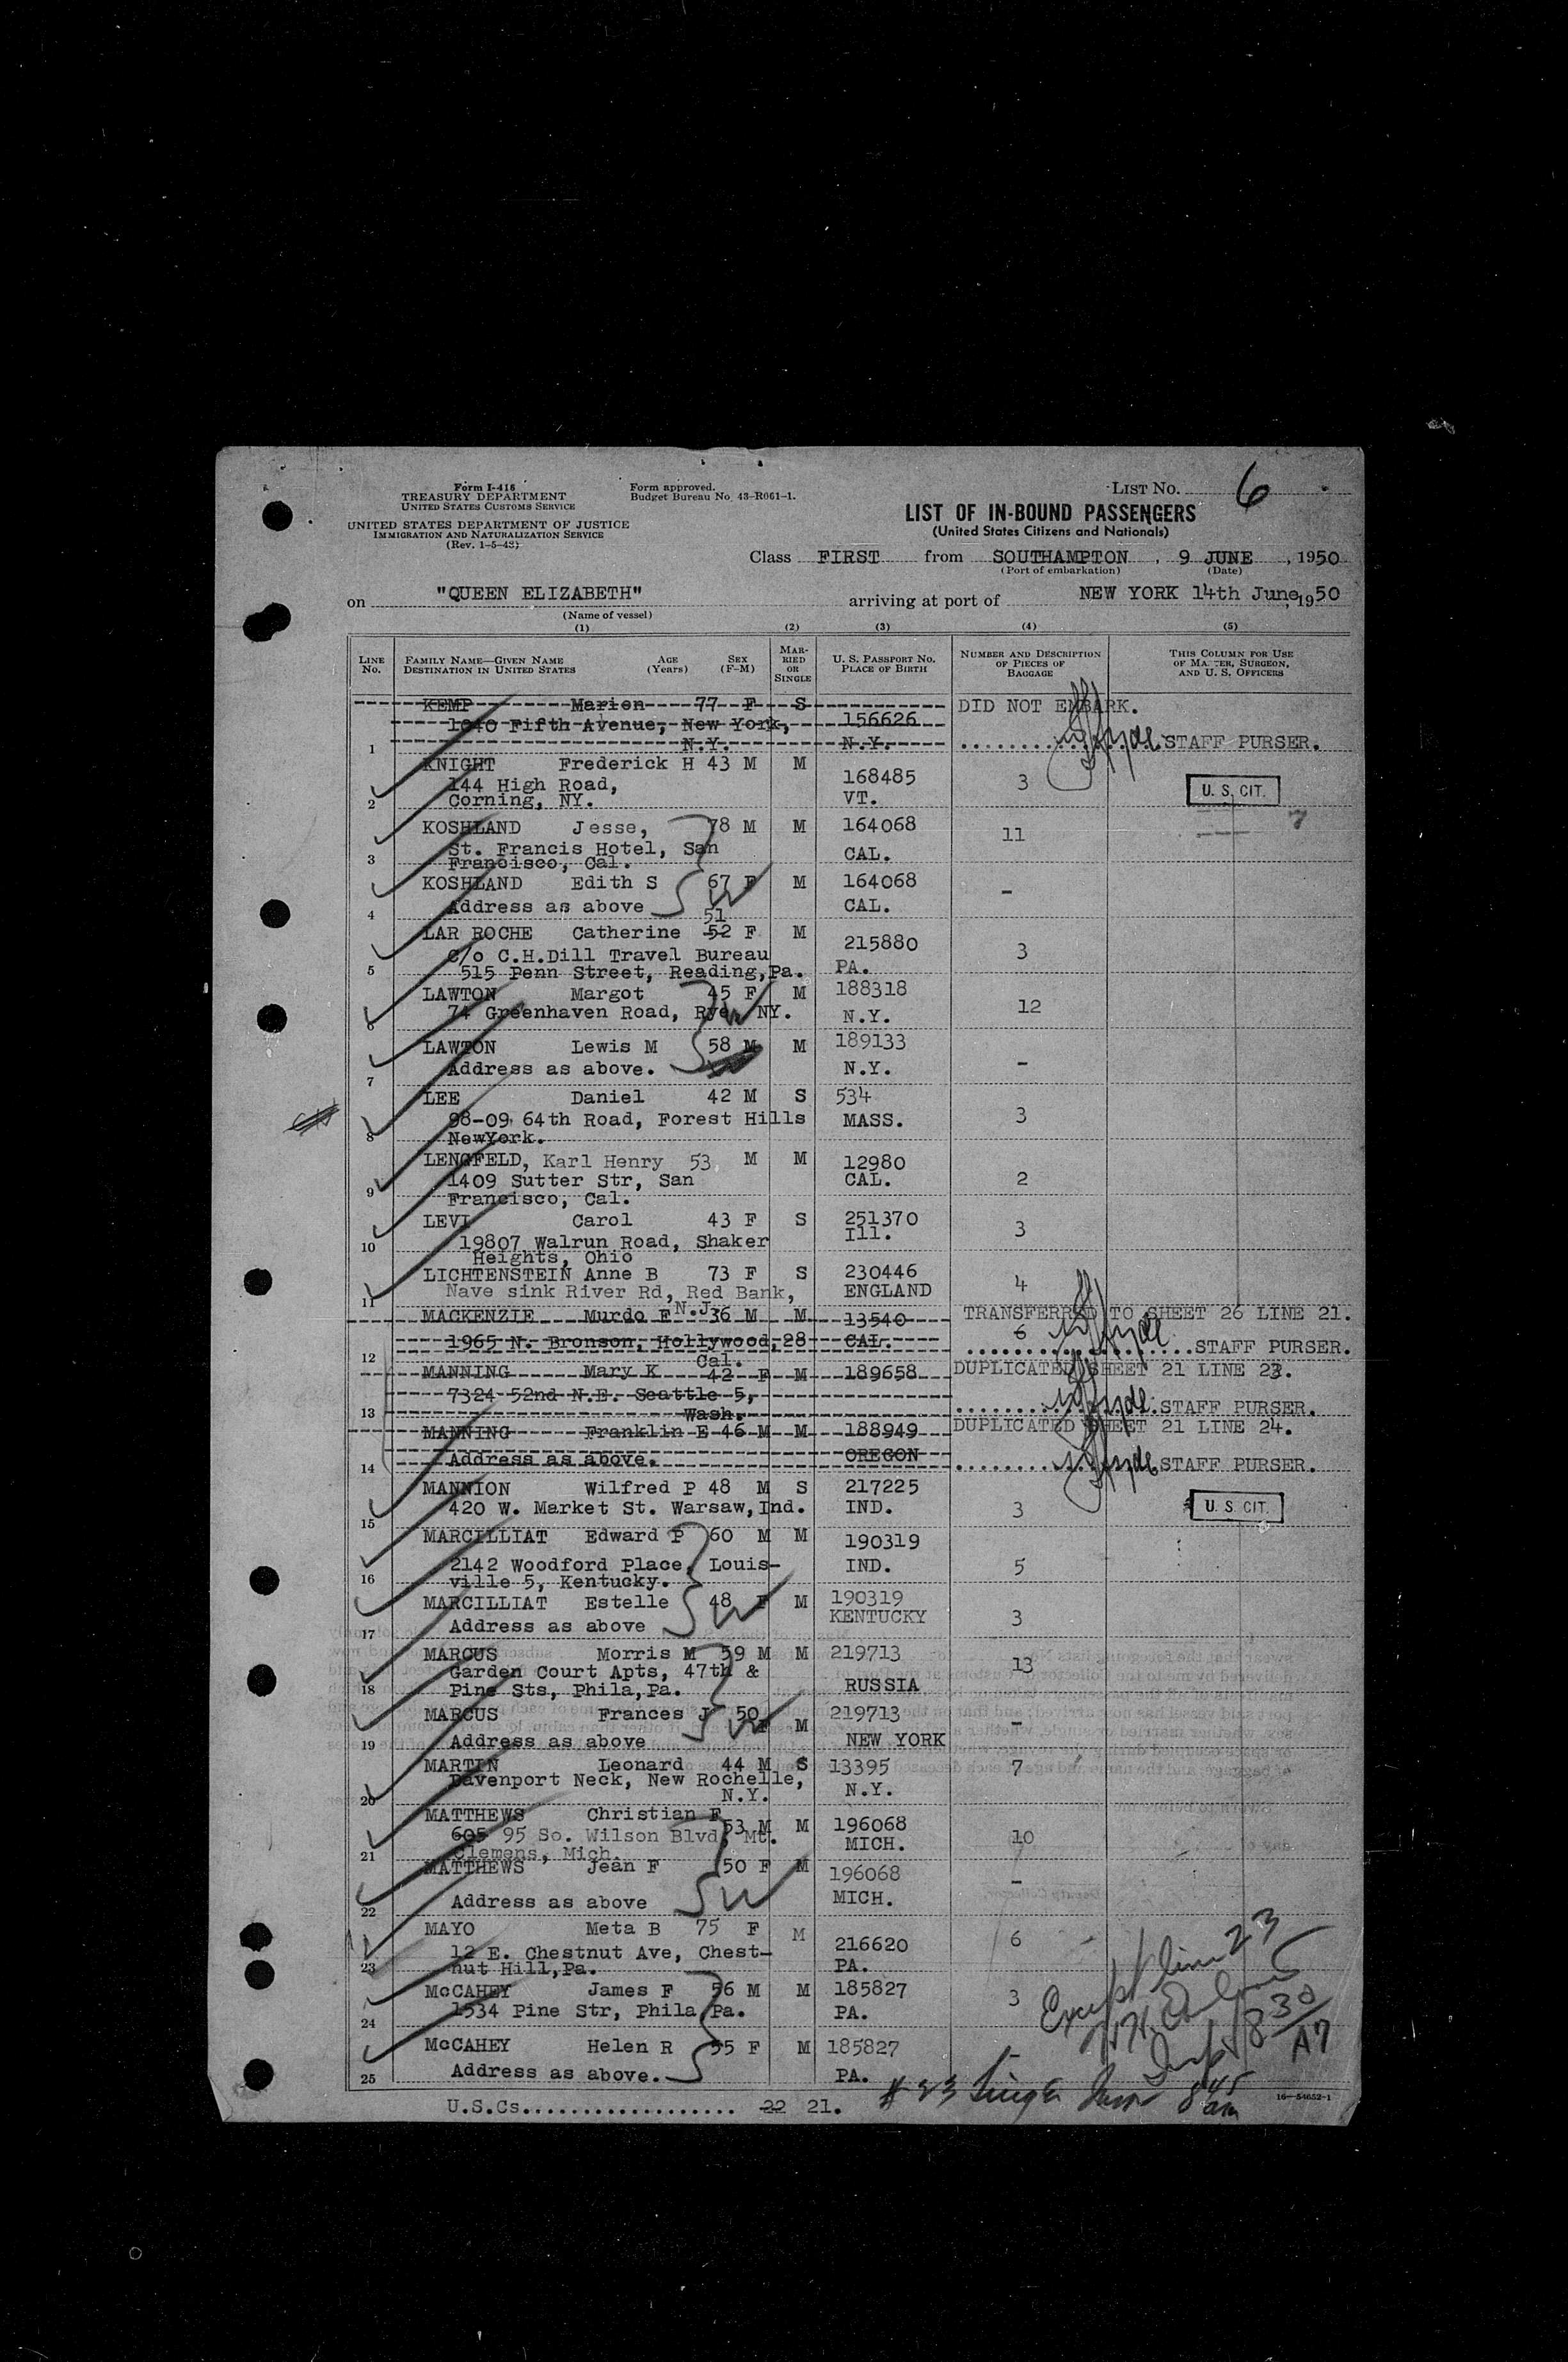 Form I-416
TREASURY DEPARTMENT
UNITED STATES CUSTOMS SERVICE
UNITED STATES DEPARTMENT OF JUSTICE
IMMIGRATION AND NATURALIZATION SERVICE
(Rev. 1-5-43)
Form approved.
Budget Bureau No. 43-R061-1.
LIST NO. 6
LIST OF IN-BOUND PASSENGERS
(United States Citizens and Nationals)
Class FIRST from SOUTHAMPTON, 9 JUNE, 1950
(Port of embarkation) (Date)
on "QUEEN ELIZABETH" arriving at port of NEW YORK 14th June, 1950
(Name of vessel)
(1) (2) (3) (4) (5)
LINE NO. FAMILY NAME—GIVEN NAME DESTINATION IN UNITED STATES AGE (Years) SEX (F-M) MARRIED OR SINGLE U. S. PASSPORT NO. PLACE OF BIRTH NUMBER AND DESCRIPTION OF PIECES OF BAGGAGE THIS COLUMN FOR USE OF MASTER, SURGEON, AND U. S. OFFICERS
KEMP Marion 77 F S DID NOT EMBARK.
1040 Fifth Avenue, New York, 156626
1 N.Y. N.Y. STAFF PURSER.
KNIGHT Frederick H 43 M M
144 High Road, 168485 3 U. S. CIT.
2 Corning, NY. VT.
KOSHLAND Jesse, 78 M M 164068 11
St. Francis Hotel, San
3 Francisco, Cal. CAL.
KOSHLAND Edith S 67 F M 164068 -
4 Address as above CAL.
51
LAR ROCHE Catherine 52 F M 215880 3
C/o C.H.Dill Travel Bureau
5 515 Penn Street, Reading,Pa. PA.
LAWTON Margot 45 F M 188318 12
6 74 Greenhaven Road, Rye, NY. N.Y.
LAWTON Lewis M 58 M M 189133 -
7 Address as above. N.Y.
LEE Daniel 42 M S 534 3
98-09 64th Road, Forest Hills MASS.
8 NewYork.
LENGFELD, Karl Henry 53 M M 12980
1409 Sutter Str, San CAL. 2
9 Francisco, Cal.
LEVI Carol 43 F S 251370 3
10 19807 Walrun Road, Shaker Ill.
Heights, Ohio
LICHTENSTEIN Anne B 73 F S 230446 4
11 Nave sink River Rd, Red Bank, ENGLAND
N.J.
MACKENZIE Murdo F 36 M M 13540 TRANSFERRED TO SHEET 26 LINE 21.
1965 N. Bronson, Hollywood,28 CAL. 6 STAFF PURSER.
12 Cal.
MANNING Mary K 42 F M 189658 DUPLICATED SHEET 21 LINE 23.
7324 52nd N.E. Seattle 5,
13 Wash. STAFF PURSER.
MANNING Franklin E 46 M M 188949 DUPLICATED SHEET 21 LINE 24.
14 Address as above. OREGON STAFF PURSER.
MANNION Wilfred P 48 M S 217225 3 U. S. CIT.
15 420 W. Market St. Warsaw,Ind. IND.
MARCILLIAT Edward P 60 M M 190319 5
2142 Woodford Place, Louis- IND.
16 ville 5, Kentucky.
MARCILLIAT Estelle 48 F M 190319 3
17 Address as above KENTUCKY
MARCUS Morris M 59 M M 219713 13
Garden Court Apts, 47th &
18 Pine Sts, Phila,Pa. RUSSIA
MARCUS Frances J 50 F M 219713 -
19 Address as above NEW YORK
MARTIN Leonard 44 M S 13395 7
Davenport Neck, New Rochelle,
20 N.Y. N.Y.
MATTHEWS Christian F 53 M M 196068 10
605 95 So. Wilson Blvd, Mt. MICH.
21 Clemens, Mich.
MATTHEWS Jean F 50 F M 196068 -
22 Address as above MICH.
MAYO Meta B 75 F M 216620 6
12 E. Chestnut Ave, Chest-
23 nut Hill,Pa. PA.
McCAHEY James F 56 M M 185827 3
24 1534 Pine Str, Phila Pa. PA.
McCAHEY Helen R 55 F M 185827 -
25 Address as above. PA.
Except line 23
Insp 830
A7
# 23 845 am
U.S.Cs................... 22 21.
16—54652-1